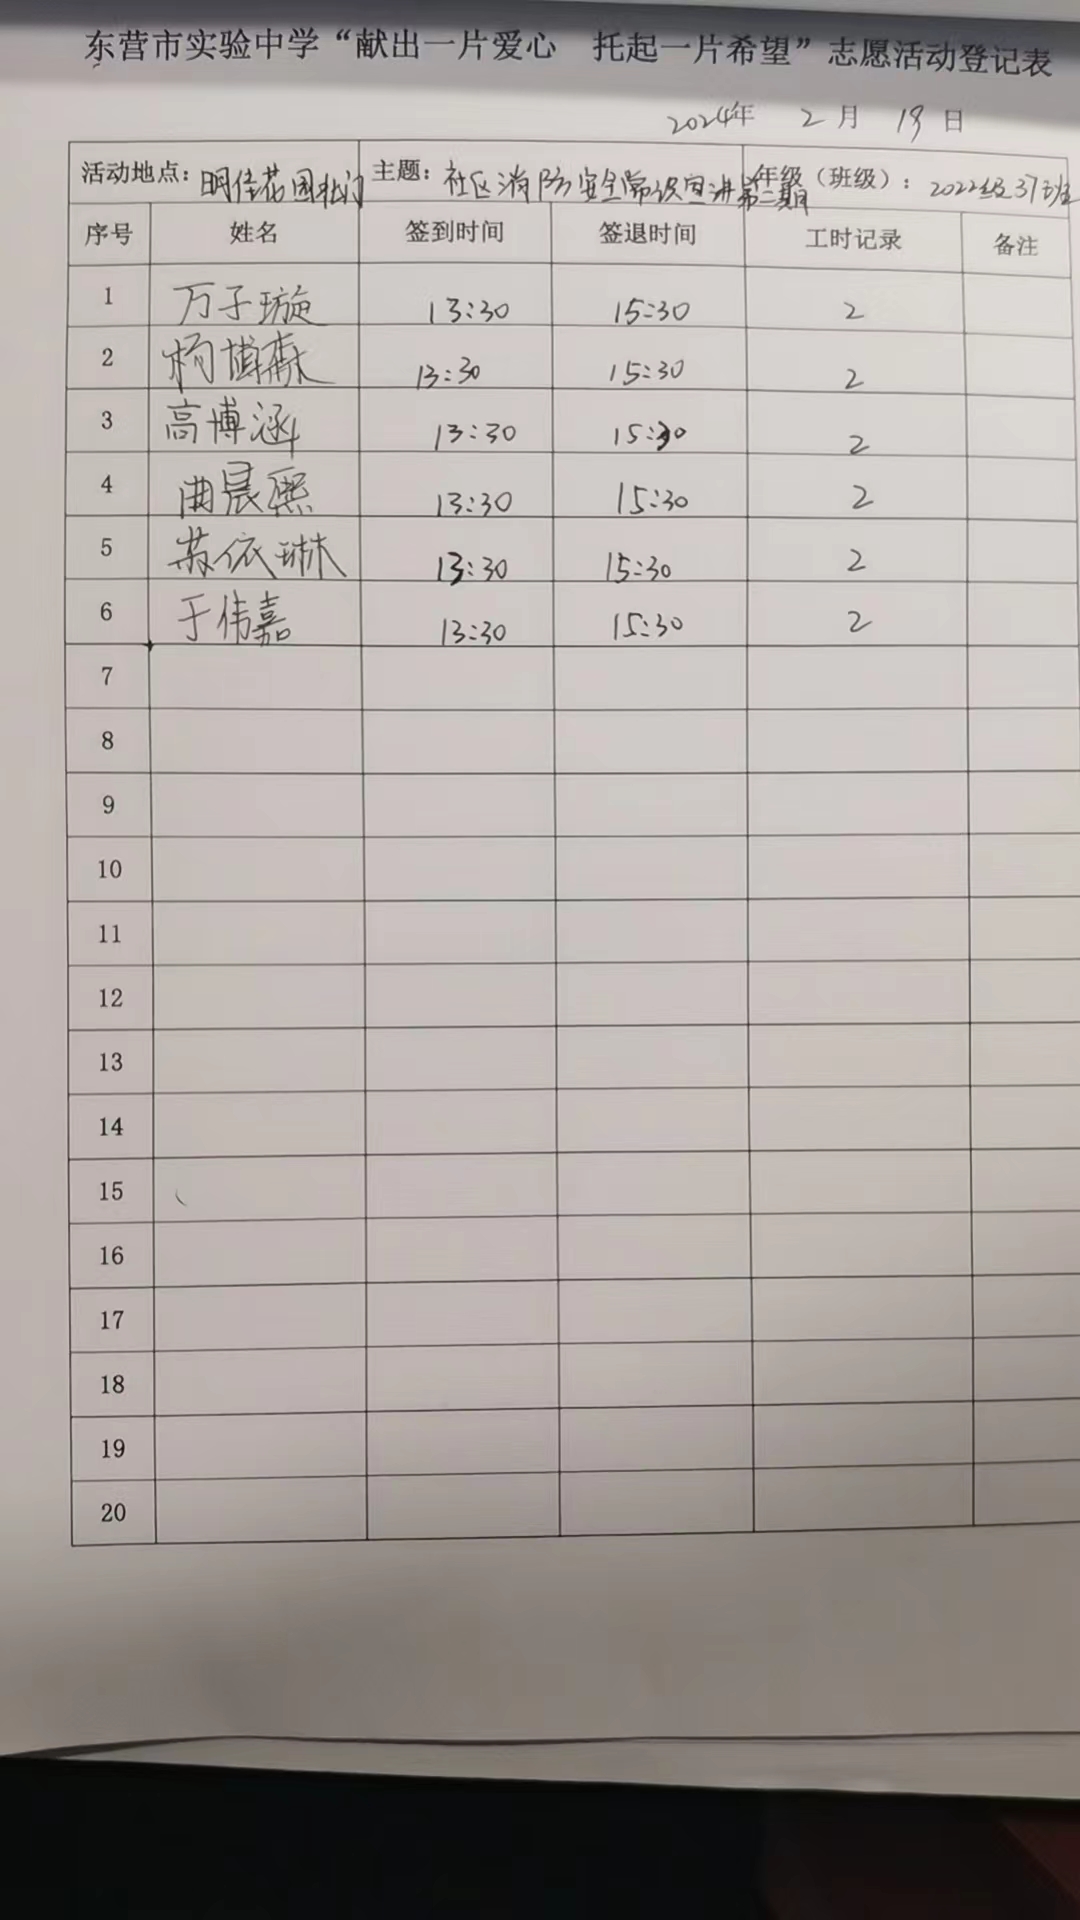 东营市实验中学“献出一片爱心 托起一片希望”志愿活动登记表
2024年 2月 19日
活动地点：明佳花园北门 主题：社区消防安全常识宣讲第二期 年级（班级）：2022级37班
序号 姓名 签到时间 签退时间 工时记录 备注
1 万子璇 13:30 15:30 2
2 杨博森 13:30 15:30 2
3 高博涵 13:30 15:30 2
4 曲晨熙 13:30 15:30 2
5 苏依琳 13:30 15:30 2
6 于伟嘉 13:30 15:30 2
7
8
9
10
11
12
13
14
15
16
17
18
19
20